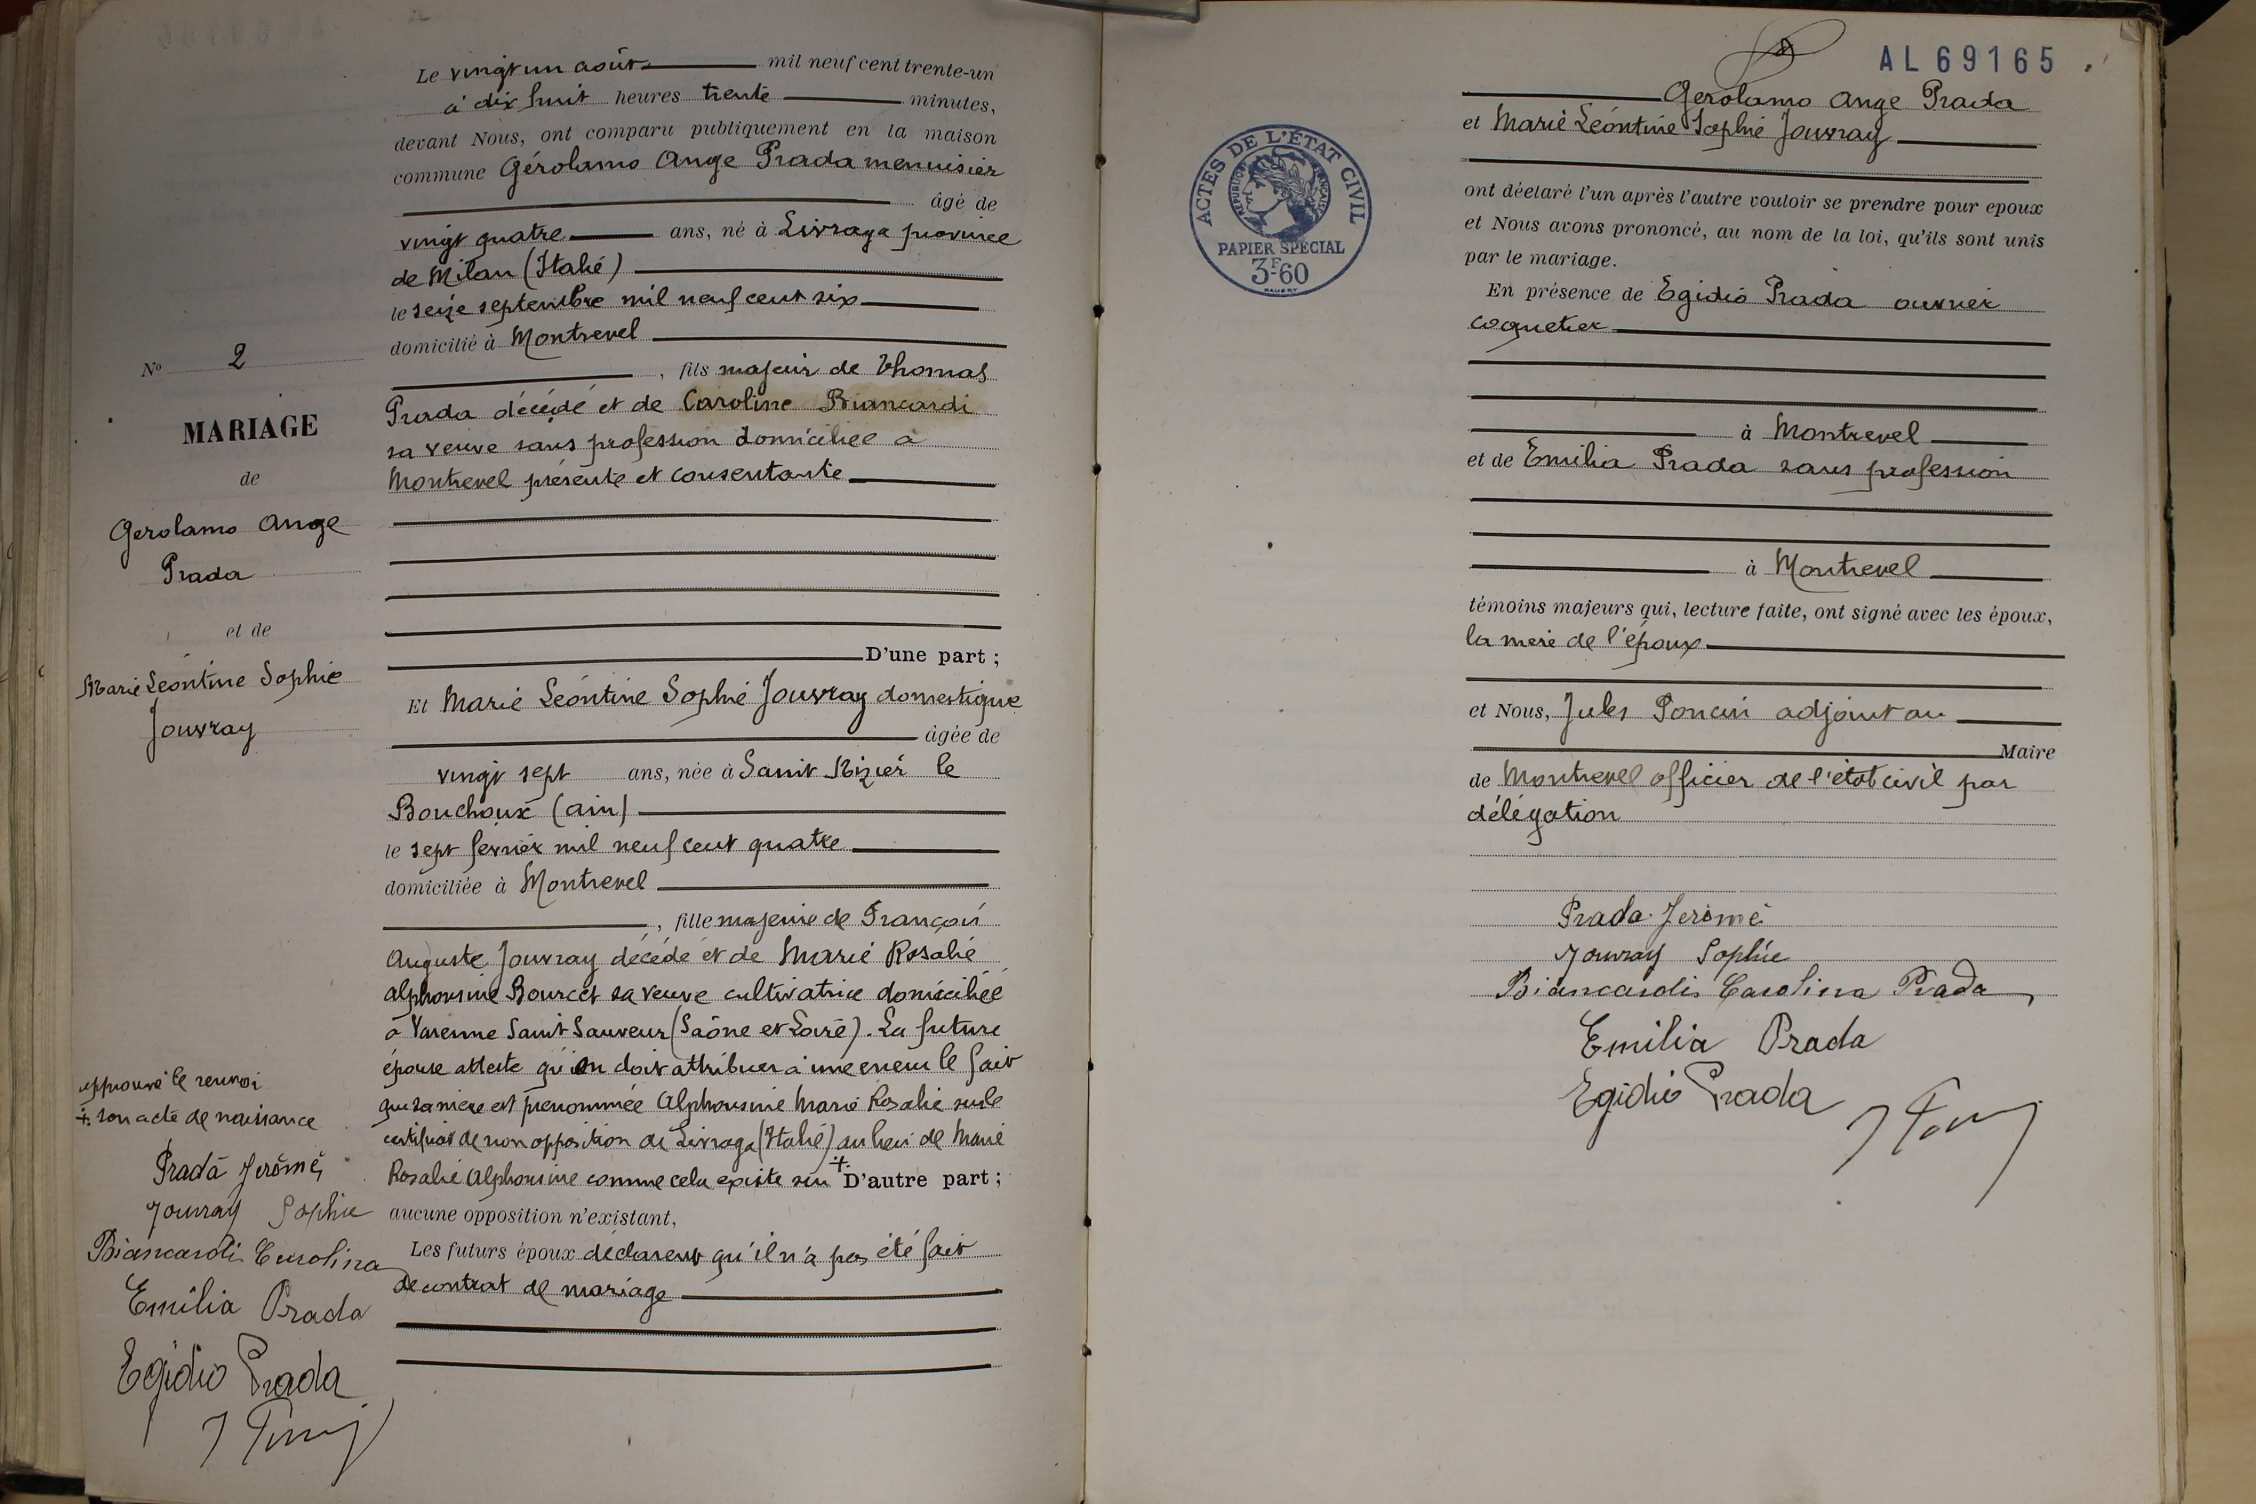 Le vingt un août mil neuf cent trente-un
à dix huit heures trente minutes,
devant Nous, ont comparu publiquement en la maison
commune Gérolamo Ange Prada menuisier
âgé de
vingt quatre ans, né à Livraga province
de Milan (Italie)
le seize septembre mil neuf cent six
domicilié à Montrevel
, fils majeur de Thomas
Prada décédé et de Caroline Biancardi
sa veuve sans profession domiciliée à
Montrevel présente et consentante
D'une part ;
Et Marie Léontine Sophie Jouvray domestique
âgée de
vingt sept ans, née à Saint Nizier le
Bouchoux (Ain)
le sept février mil neuf cent quatre
domiciliée à Montrevel
, fille majeure de François
Auguste Jouvray décédé et de Marie Rosalie
Alphonsine Bourcet sa veuve cultivatrice domiciliée
à Varenne Saint Sauveur (Saône et Loire). La future
épouse atteste qu'on doit attribuer à une erreur le fait
que sa mère est prénommée Alphonsine Marie Rosalie sur le
certificat de non opposition de Livraga (Italie) au lieu de Marie
Rosalie Alphonsine comme cela existe sur + D'autre part ;
aucune opposition n'existant,
Les futurs époux déclarent qu'il n'a pas été fait
de contrat de mariage
No 2
MARIAGE
de
Gerolamo Ange
Prada
et de
Marie Léontine Sophie
Jouvray
approuvé le renvoi
+ son acte de naissance
Prada Jerôme
Jouvray Sophie
Biancardi Carolina
Emilia Prada
Egidio Prada
AL 69165
Gerolamo Ange Prada
et Marie Léontine Sophie Jouvray
ACTES DE L'ÉTAT CIVIL
RÉPUBLIQUE FRANÇAISE
PAPIER SPÉCIAL
3F60
ont déclaré l'un après l'autre vouloir se prendre pour epoux
et Nous avons prononcé, au nom de la loi, qu'ils sont unis
par le mariage.
En présence de Egidio Prada ouvrier
coquetier
à Montrevel
et de Emilia Prada sans profession
à Montrevel
témoins majeurs qui, lecture faite, ont signé avec les époux,
la mère de l'époux
et Nous, Jules Poncin adjoint au
Maire
de Montrevel officier de l'état civil par
délégation
Prada Jerôme
Jouvray Sophie
Biancardi Carolina Prada
Emilia Prada
Egidio Prada